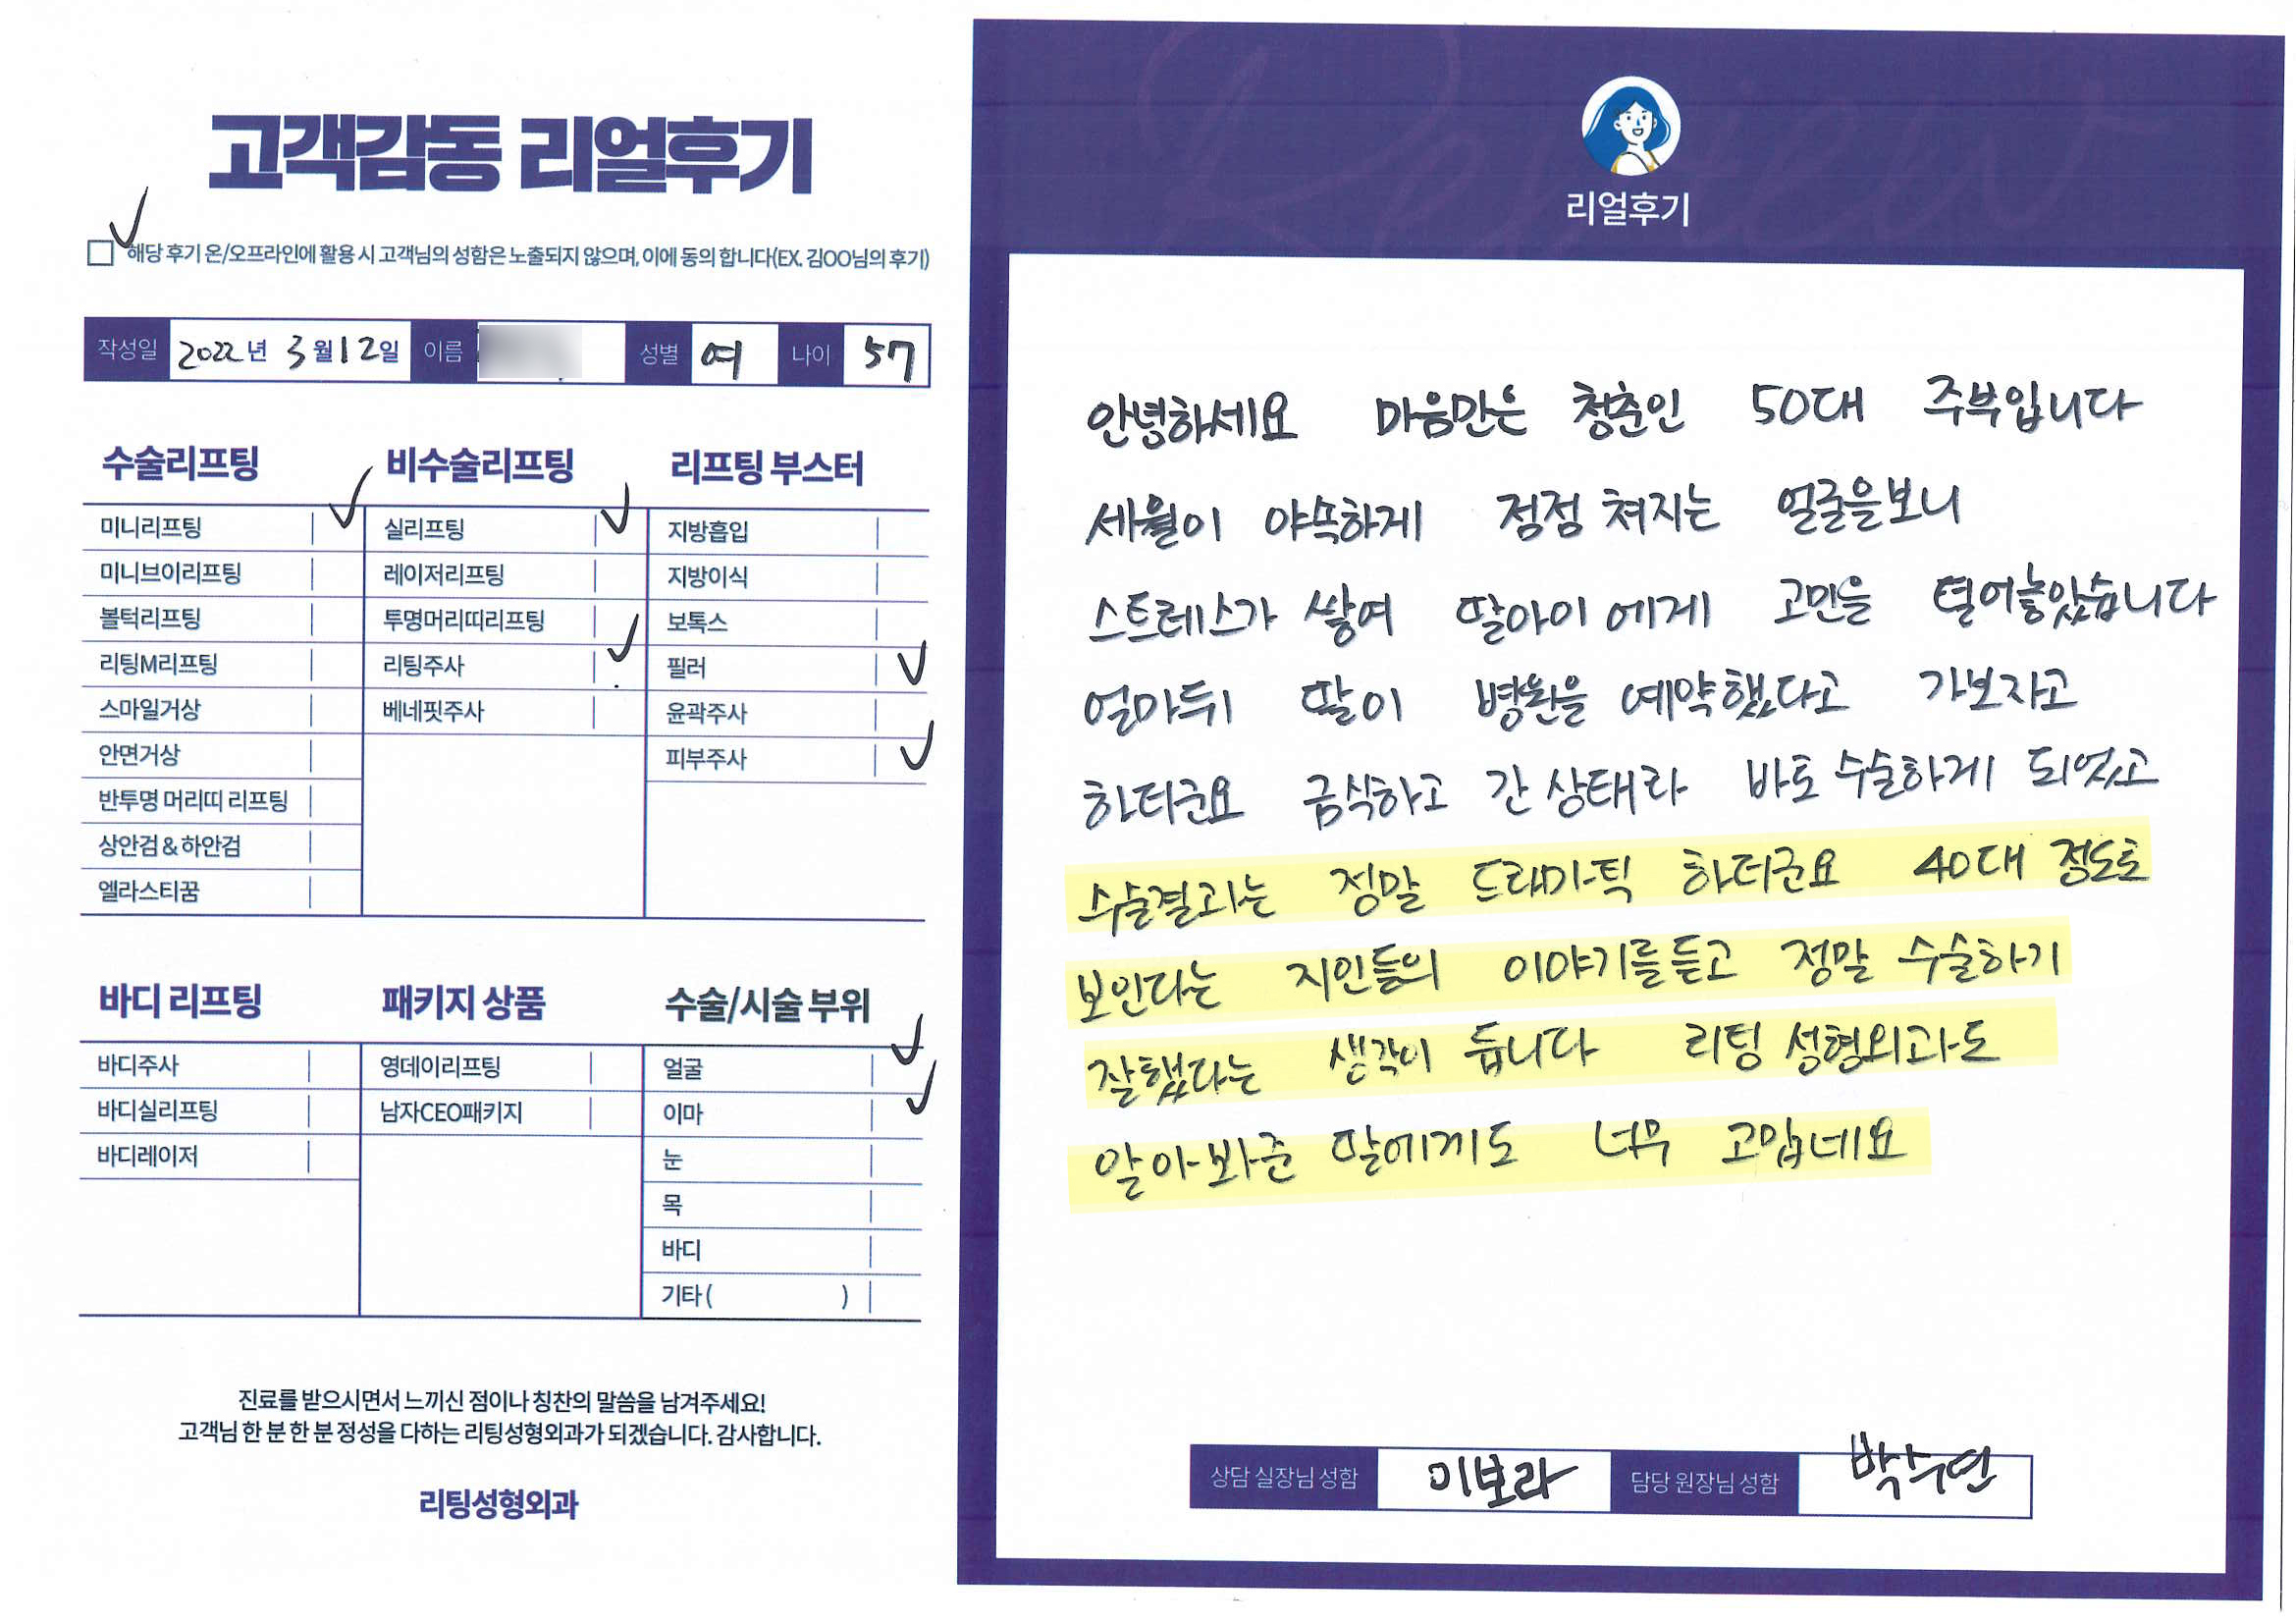 고객감동 리얼후기
해당 후기 온/오프라인에 활용 시 고객님의 성함은 노출되지 않으며, 이에 동의 합니다(EX. 김OO님의 후기)
작성일 2022년 3월12일 이름 성별 여 나이 57
수술리프팅
미니리프팅
미니브이리프팅
볼턱리프팅
리팅M리프팅
스마일거상
안면거상
반투명 머리띠 리프팅
상안검 & 하안검
엘라스티꿈
비수술리프팅
실리프팅
레이저리프팅
투명머리띠리프팅
리팅주사
베네핏주사
리프팅 부스터
지방흡입
지방이식
보톡스
필러
윤곽주사
피부주사
바디 리프팅
바디주사
바디실리프팅
바디레이저
패키지 상품
영데이리프팅
남자CEO패키지
수술/시술 부위
얼굴
이마
눈
목
바디
기타 ( )
진료를 받으시면서 느끼신 점이나 칭찬의 말씀을 남겨주세요!
고객님 한 분 한 분 정성을 다하는 리팅성형외과가 되겠습니다. 감사합니다.
리팅성형외과
Review
리얼후기
안녕하세요 마음만은 청춘인 50대 주부입니다
세월이 야속하게 점점 쳐지는 얼굴을보니
스트레스가 쌓여 딸아이에게 고민을 털어놓았습니다
얼마뒤 딸이 병원을 예약했다고 가보자고
하더군요 금식하고 간 상태라 바로 수술하게 되었고
수술결과는 정말 드라마틱 하더군요 40대 정도로
보인다는 지인들의 이야기를듣고 정말 수술하기
잘했다는 생각이 듭니다 리팅 성형외과도
알아봐준 딸에게도 너무 고맙네요
상담 실장님 성함 이보라 담당 원장님 성함 박수연